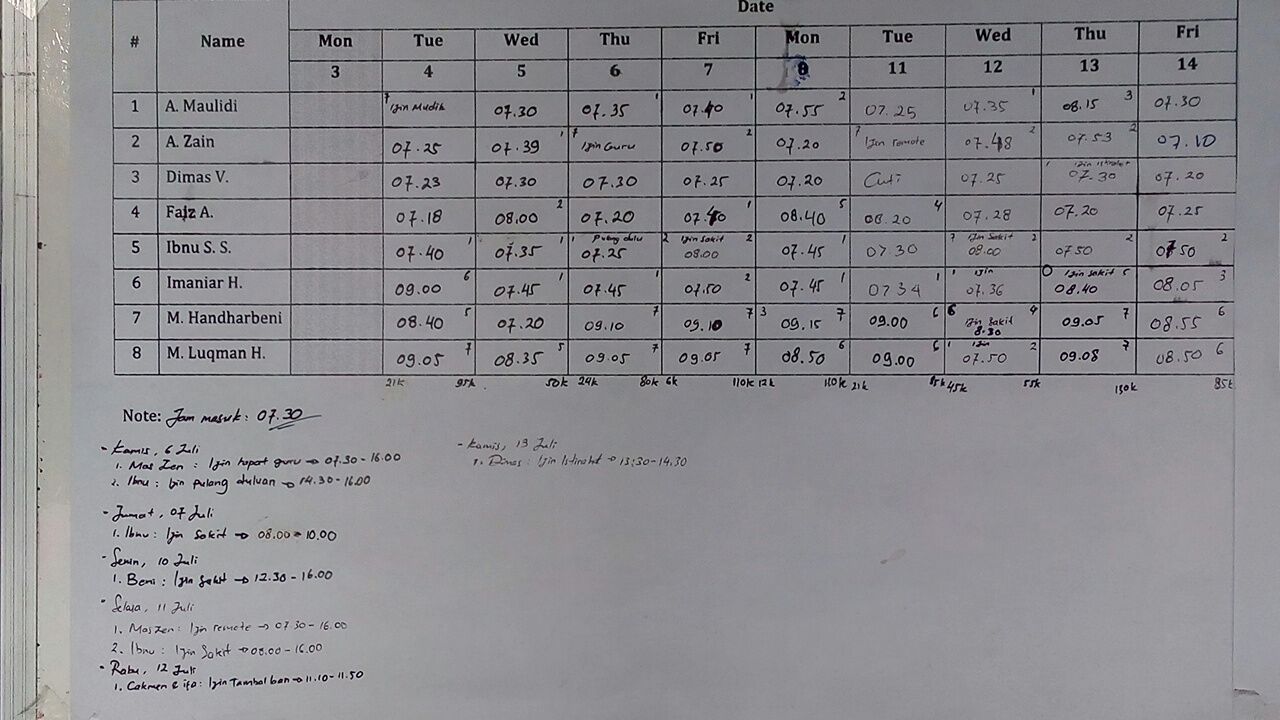 Date
# Name Mon Tue Wed Thu Fri Mon Tue Wed Thu Fri
3 4 5 6 7 11 12 13 14
1 A. Maulidi 7 Izin Mudik 07.30 07.35 1 07.40 1 07.55 2 07.25 07.35 1 08.15 3 07.30
2 A. Zain 07.25 07.39 1 7 Izin Guru 07.50 2 07.20 7 Izin remote 07.48 2 07.53 2 07.10
3 Dimas V. 07.23 07.30 07.30 07.25 07.20 Cuti 07.25 1 Izin Istirahat 07.30 07.20
4 Faiz A. 07.18 08.00 2 07.20 07.40 1 08.40 5 08.20 4 07.28 07.20 07.25
5 Ibnu S. S. 07.40 1 07.35 1 1 Pulang dulu 07.25 2 Izin sakit 08.00 2 07.45 1 07 30 7 Izin Sakit 08.00 2 07 50 2 07 50 2
6 Imaniar H. 09.00 6 07.45 1 07.45 1 07.50 2 07.45 1 07 34 1 1 Izin 07.36 0 Izin sakit 08.40 5 08.05 3
7 M. Handharbeni 08.40 5 07.20 09.10 7 09.10 7 3 09.15 7 09.00 6 6 Izin Sakit 8.30 4 09.05 7 08.55 6
8 M. Luqman H. 09.05 7 08.35 5 09.05 7 09.05 7 08.50 6 09.00 6 1 Izin 07.50 2 09.08 7 08.50 6
21k 95k 50k 24k 80k 6k 110k 12k 110k 21k 85k 45k 55k 130k 85k
Note: Jam masuk: 07.30
- Kamis, 6 Juli
1. Mas Zen : Izin rapat guru → 07.30 - 16.00
2. Ibnu : Izin pulang duluan → 14.30 - 16.00
- Jumat, 07 Juli
1. Ibnu : Izin Sakit → 08.00 - 10.00
- Senin, 10 Juli
1. Beni : Izin Sakit → 12.30 - 16.00
- Selasa, 11 Juli
1. Mas Zen : Izin remote → 07.30 - 16.00
2. Ibnu : Izin Sakit → 08.00 - 16.00
- Rabu, 12 Juli
1. Cakmen & ifa : Izin Tambal ban → 11.10 - 11.50
- Kamis, 13 Juli
1. Dimas : Izin Istirahat → 13:30 - 14.30